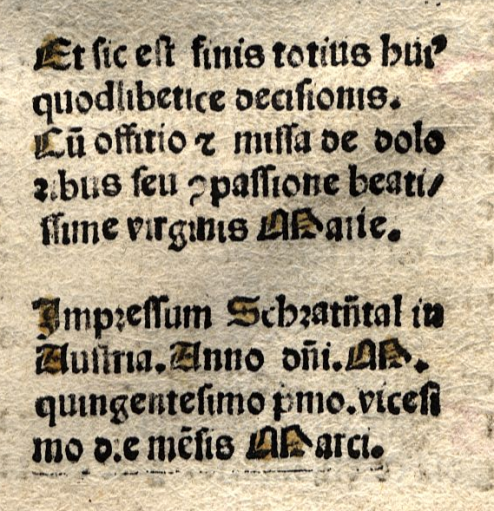 Et sic est finis totius hui⁹
quodlibetice decisionis.
Cū offitio ⁊ missa de dolo
ribus seu ꝯpassione beati/
ssime virginis Marie.
Impressum Schratn̄tal in
Austria. Anno dn̄i. M.
quingentesimo p̄mo. vicesi
mo die mēsis Marci.